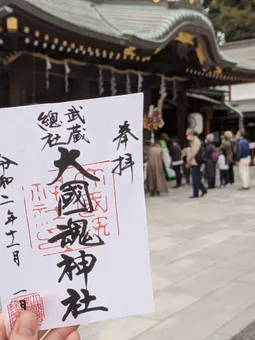 奉拝
武蔵
總社
大國魂神社
令和二年十二月一日